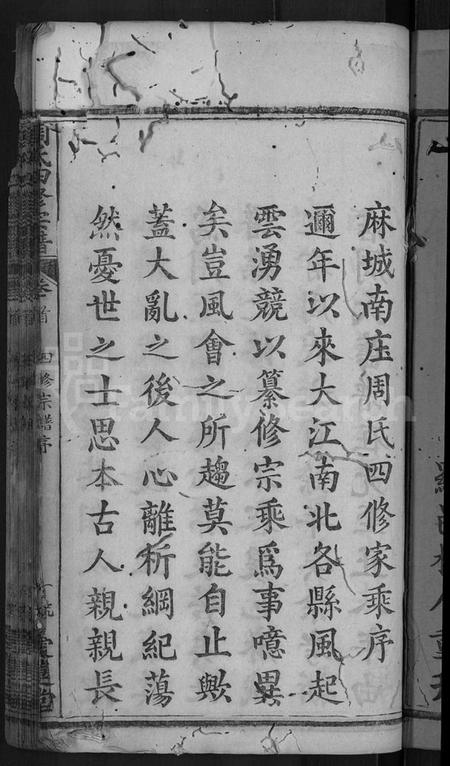 麻城南庄周氏四修家乘序
邇年以來大江南北各縣風起
雲湧競以纂修宗乘爲事噫異
矣豈風會之所趨莫能自止歟
蓋大亂之後人心離析綱紀蕩
然憂世之士思本古人親親長
周氏四修宗譜
卷首
四修宗譜序
FamilySearch